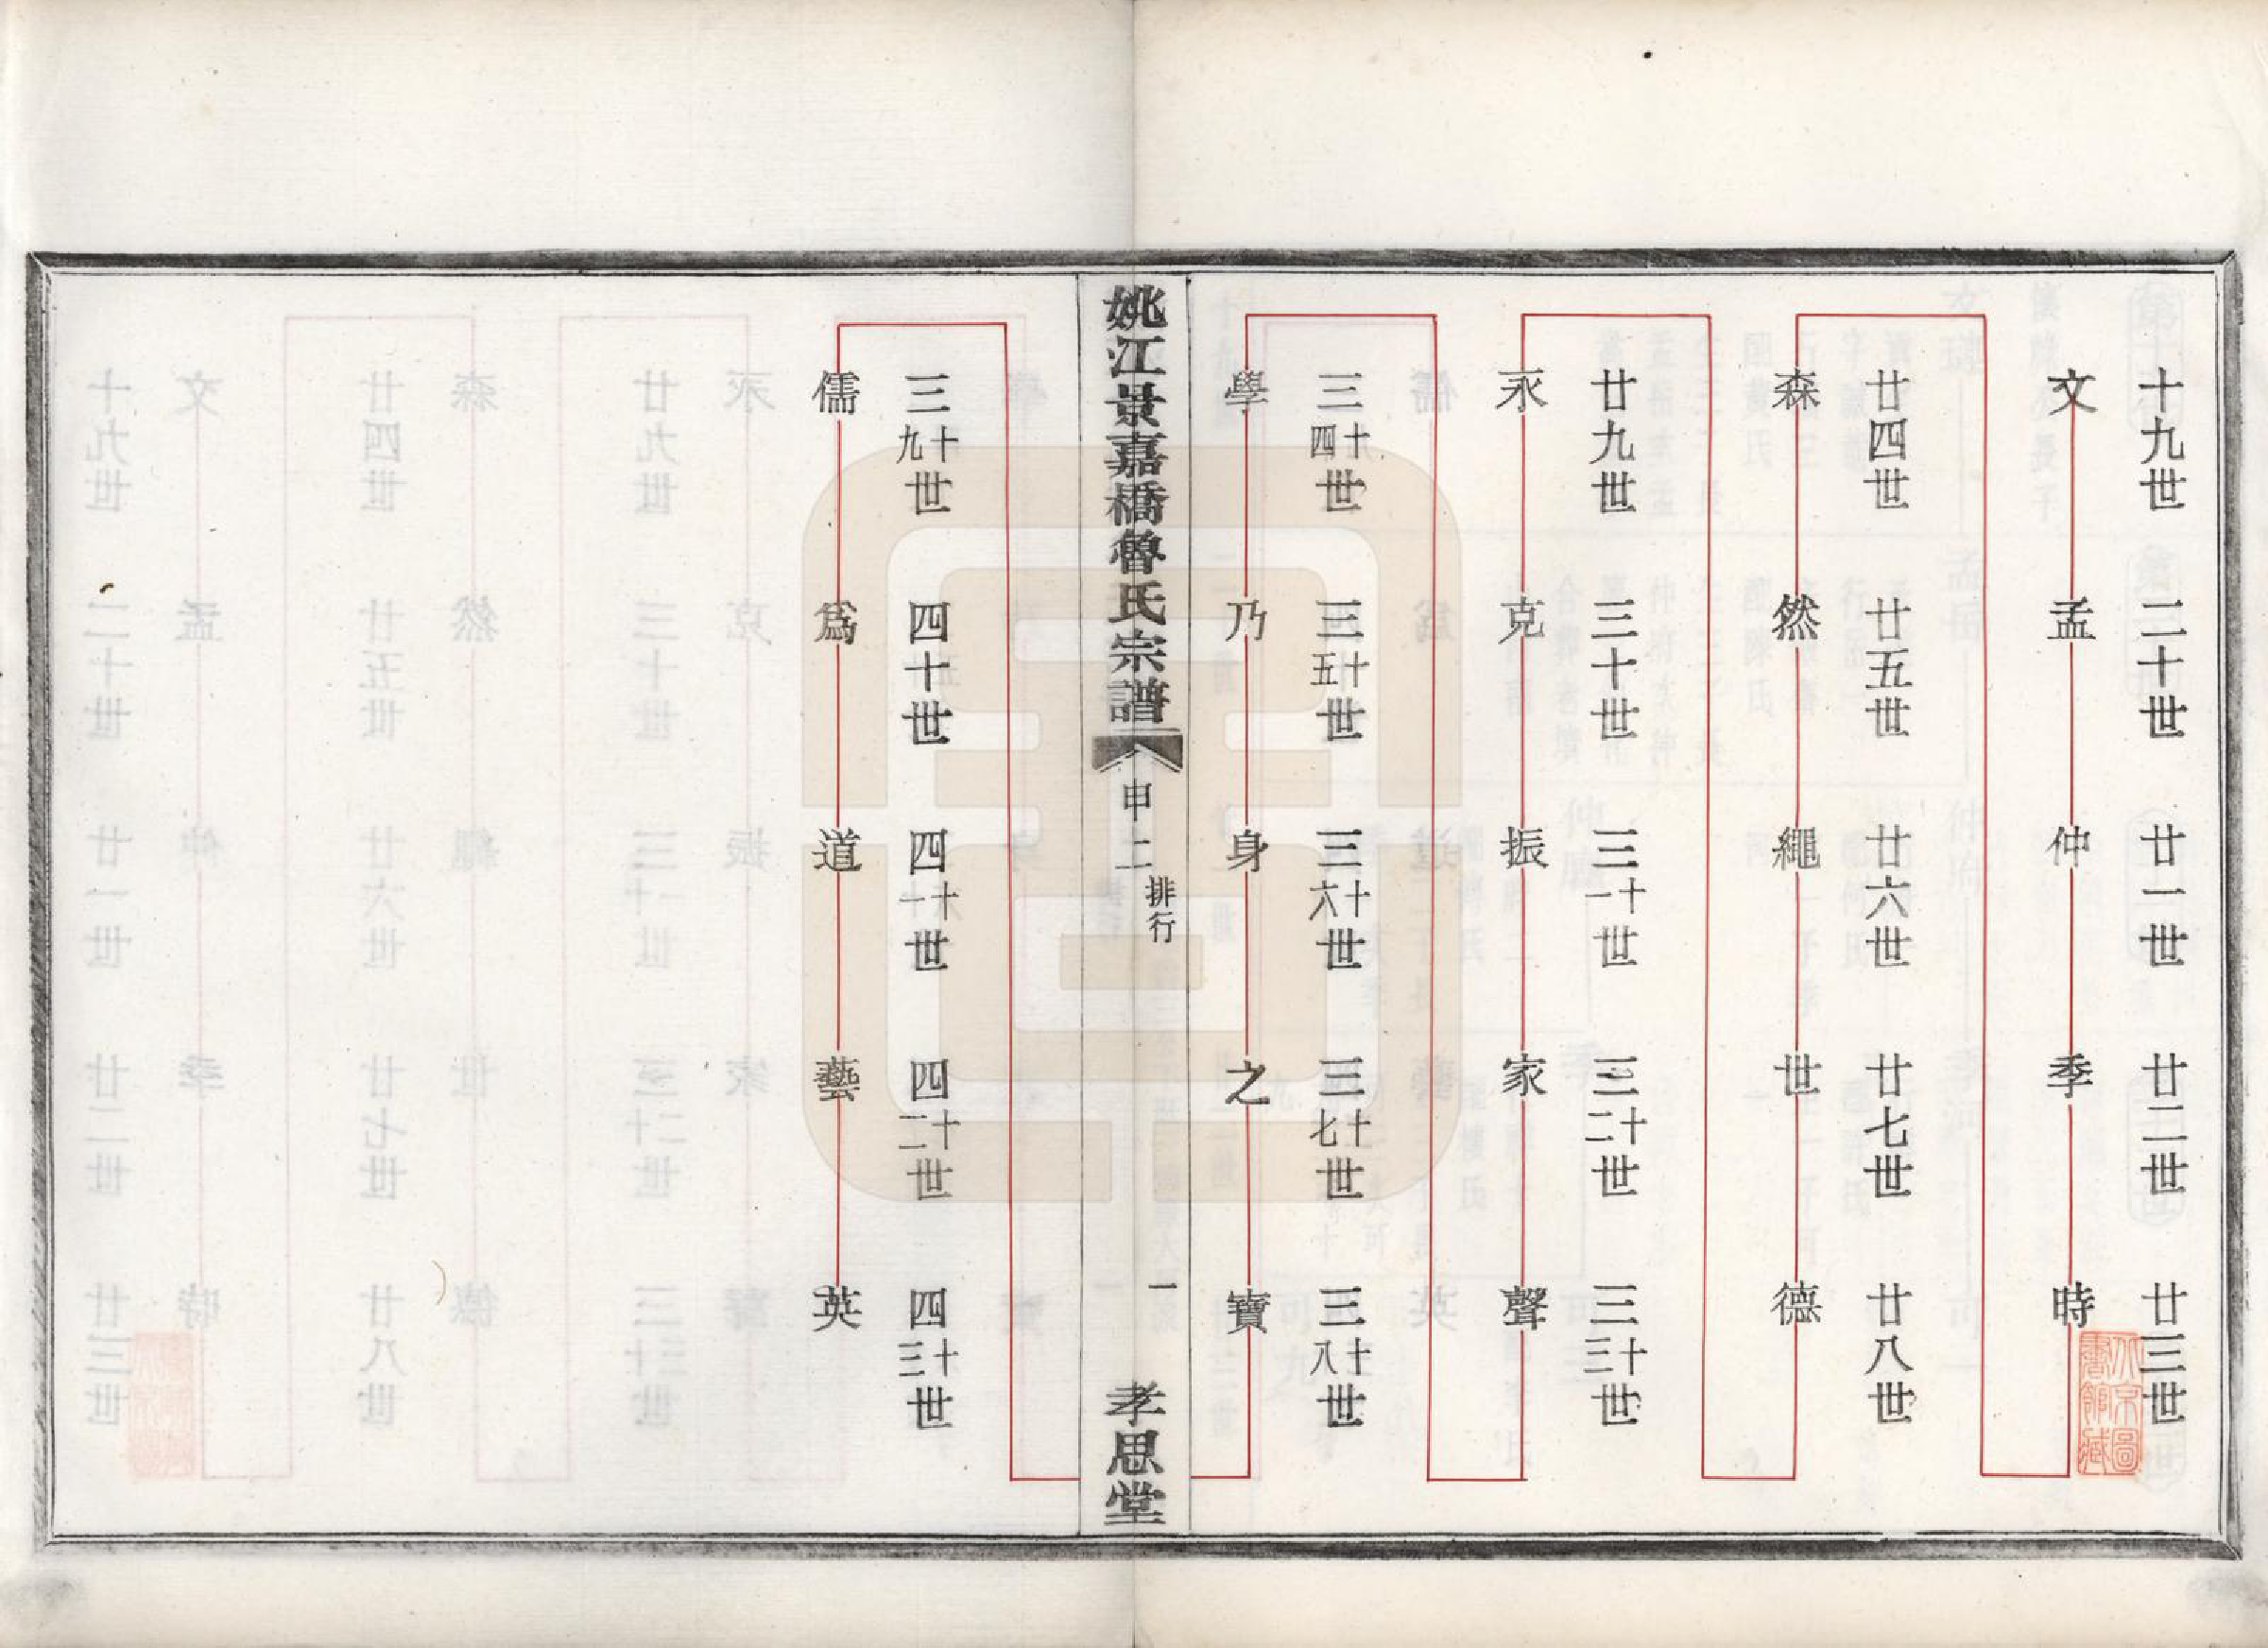 十九世 二十世 廿一世 廿二世 廿三世
文 孟 仲 季 時
廿四世 廿五世 廿六世 廿七世 廿八世
森 然 繩 世 德
廿九世 三十世 三十一世 三十二世 三十三世
永 克 振 家 聲
三十四世 三十五世 三十六世 三十七世 三十八世
學 乃 身 之 寶
姚江景嘉橋魯氏宗譜 申二 排行 一 孝思堂
三十九世 四十世 四十一世 四十二世 四十三世
儒 爲 道 藝 英
北京圖
書館藏